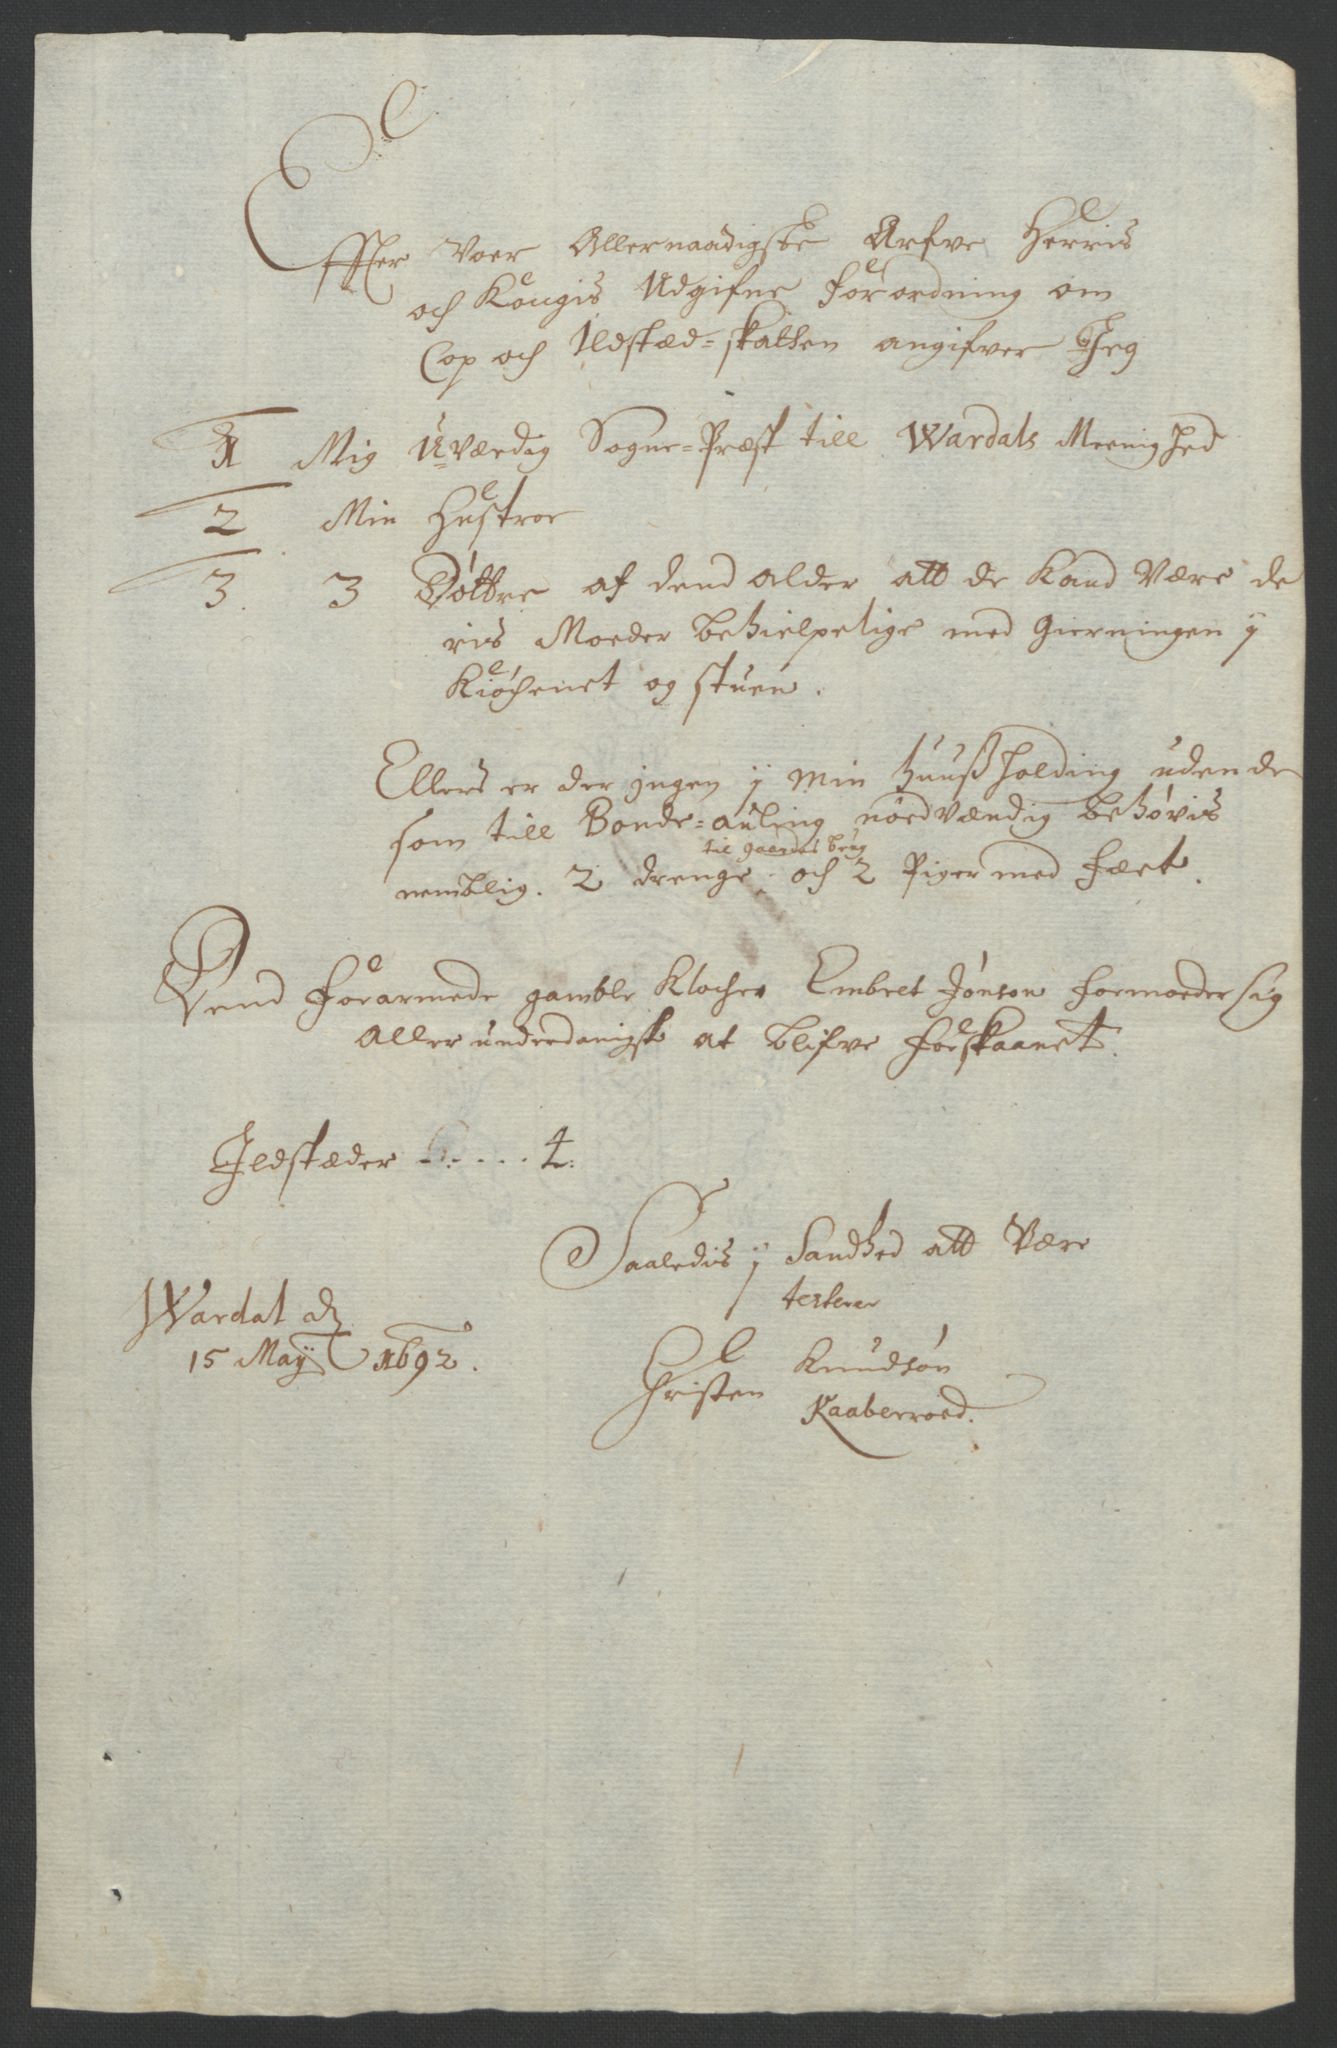 Effter Voer Allernaadigste Arfve Herris
och Kongis Udgifne forordning om
Cop och Ildstæd=skatten angifver Jeg
1 Mig Uværdig Sogne=Præst till Wardals Meenighed
2 Min Hustroe
3. 3 Døttre af dend alder att de Kand Være de
ris Moeder behielpelige med Gierningen y
Kiøchenet og stuen.
Ellers er der jngen y min huusholding uden de
som till Bonde=auling nôedvændig behøvis
til gaardes brug
nemblig. 2 drenge och 2 Piger med fæet.
Dend forarmede gamble Klocher Embret Jonson formoeder sig
Allerunderdanigst at blifve forskaanet.
Jldstæder . . . . . 4.
Saaledis y Sandhed att Være
testerer
Wardal d
15 Maÿ 1692.
Christen Knudsøn
Kaaberroed.